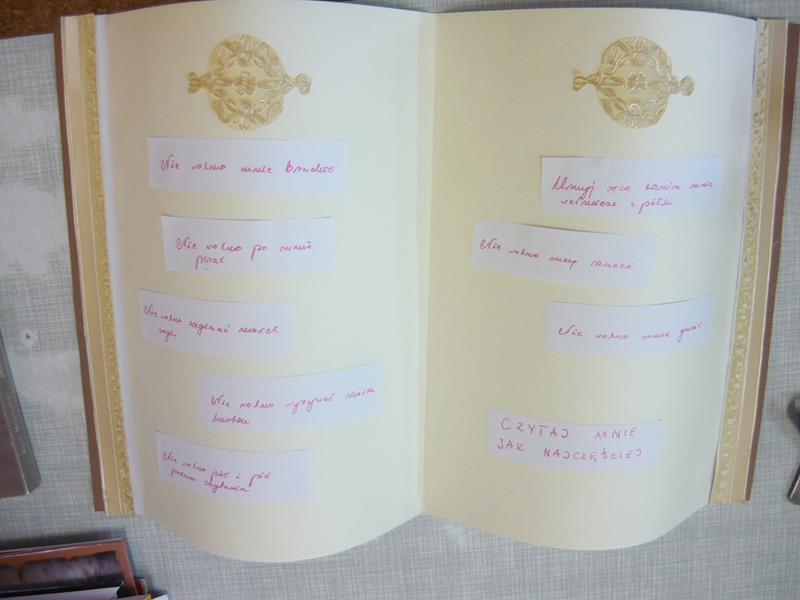 Nie wolno mnie brudzić
Nie wolno po mnie
pisać
Nie wolno zaginać moich
rogów
Nie wolno wyrywać moich
kartek
Nie wolno jeść i pić
podczas czytania
Umyj ręce zanim mnie
weźmiesz z półki
Nie wolno mną rzucać
Nie wolno mnie
CZYTAJ MNIE
JAK NAJCZĘŚCIEJ